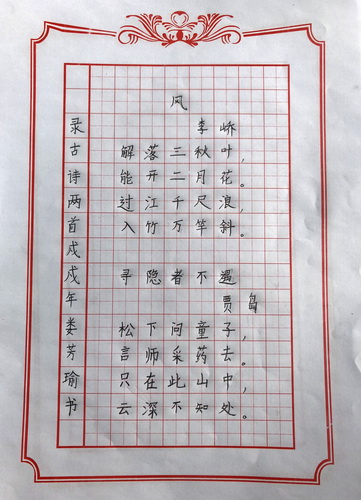 风
李峤
解落三秋叶，
能开二月花。
过江千尺浪，
入竹万竿斜。
寻隐者不遇
贾岛
松下问童子，
言师采药去。
只在此山中，
云深不知处。
录古诗两首戍戍年娄芳瑜书